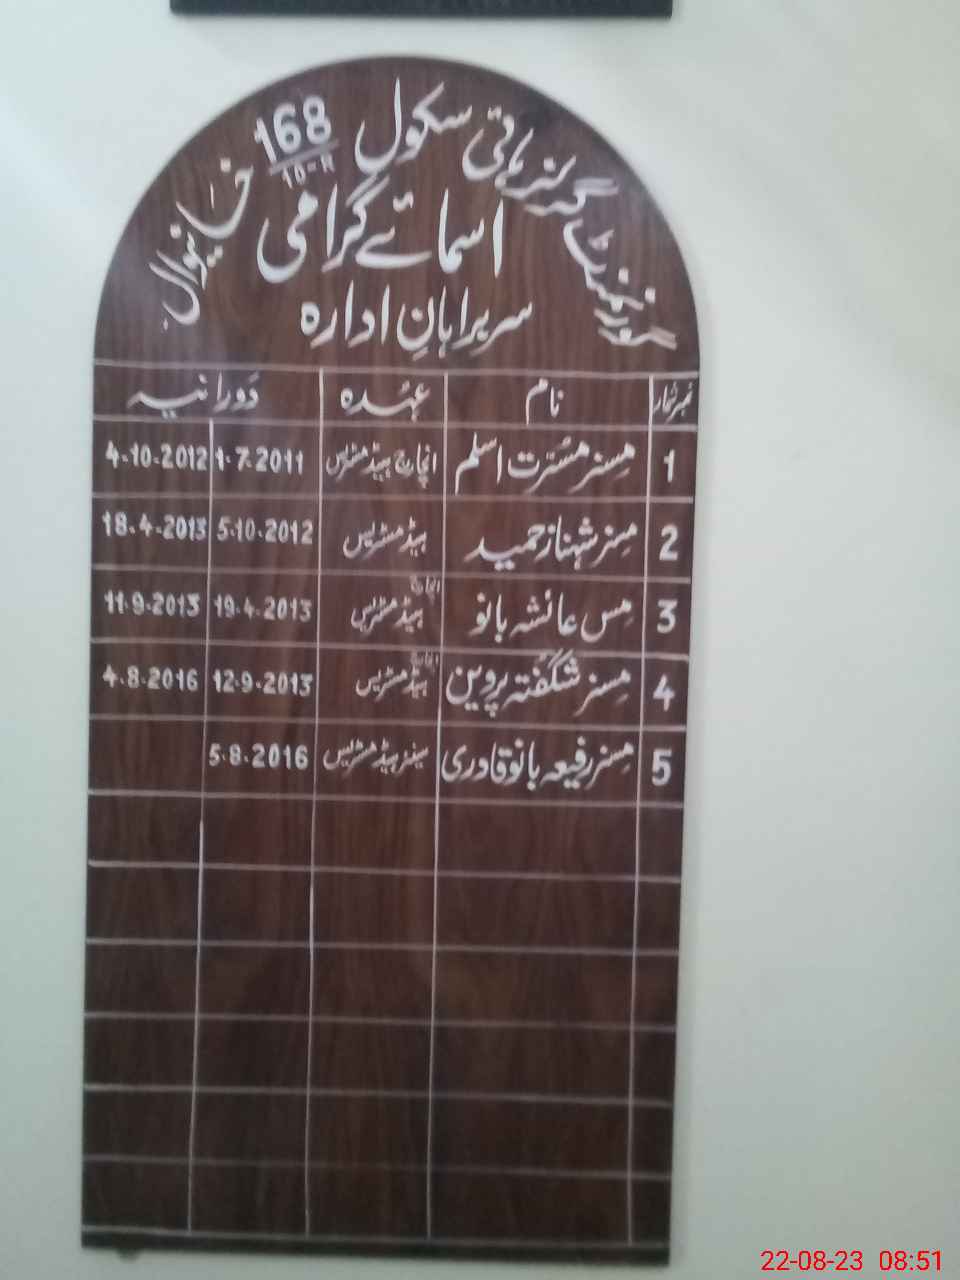 گورنمنٹ گرلز ہائی سکول 168/10-R خانیوال
اسمائے گرامی
سربراہانِ ادارہ
نمبر شمار نام عہدہ دورانیہ
1 مسز مسرت اسلم انچارج ہیڈ مسٹریس 1.7.2011 4.10.2012
2 مسز شہناز حمید ہیڈ مسٹریس 5.10.2012 18.4.2013
3 مس عائشہ بانو انچارج ہیڈ مسٹریس 19.4.2013 11.9.2013
4 مسز شگفتہ پروین انچارج ہیڈ مسٹریس 12.9.2013 4.8.2016
5 مسز رفیعہ بانو قادری سینئر ہیڈ مسٹریس 5.8.2016
22-08-23 08:51